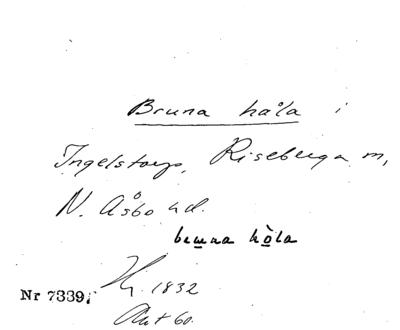 Bruna håla i
Ingelstorp, Riseberga m,
N. Åsbo hd.
bruna hòla
1832
Nr 7339,
Akt 60.